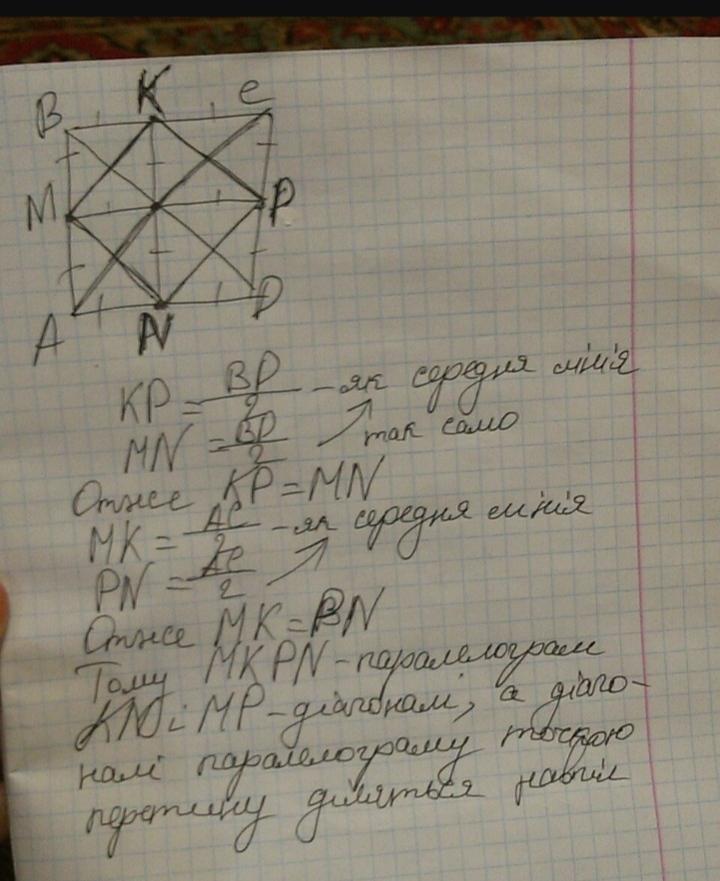 B K C
M P
A N D
KP = BD/2 - як середня лінія
MN = BD/2 ↗ так само
Отже KP = MN
MK = AC/2 - як середня лінія
PN = AC/2 ↗
Отже MK = PN
Тому MKPN - паралелограм
KN і MP - діагоналі, а діаго-
налі паралелограму точкою
перетину діляться навпіл